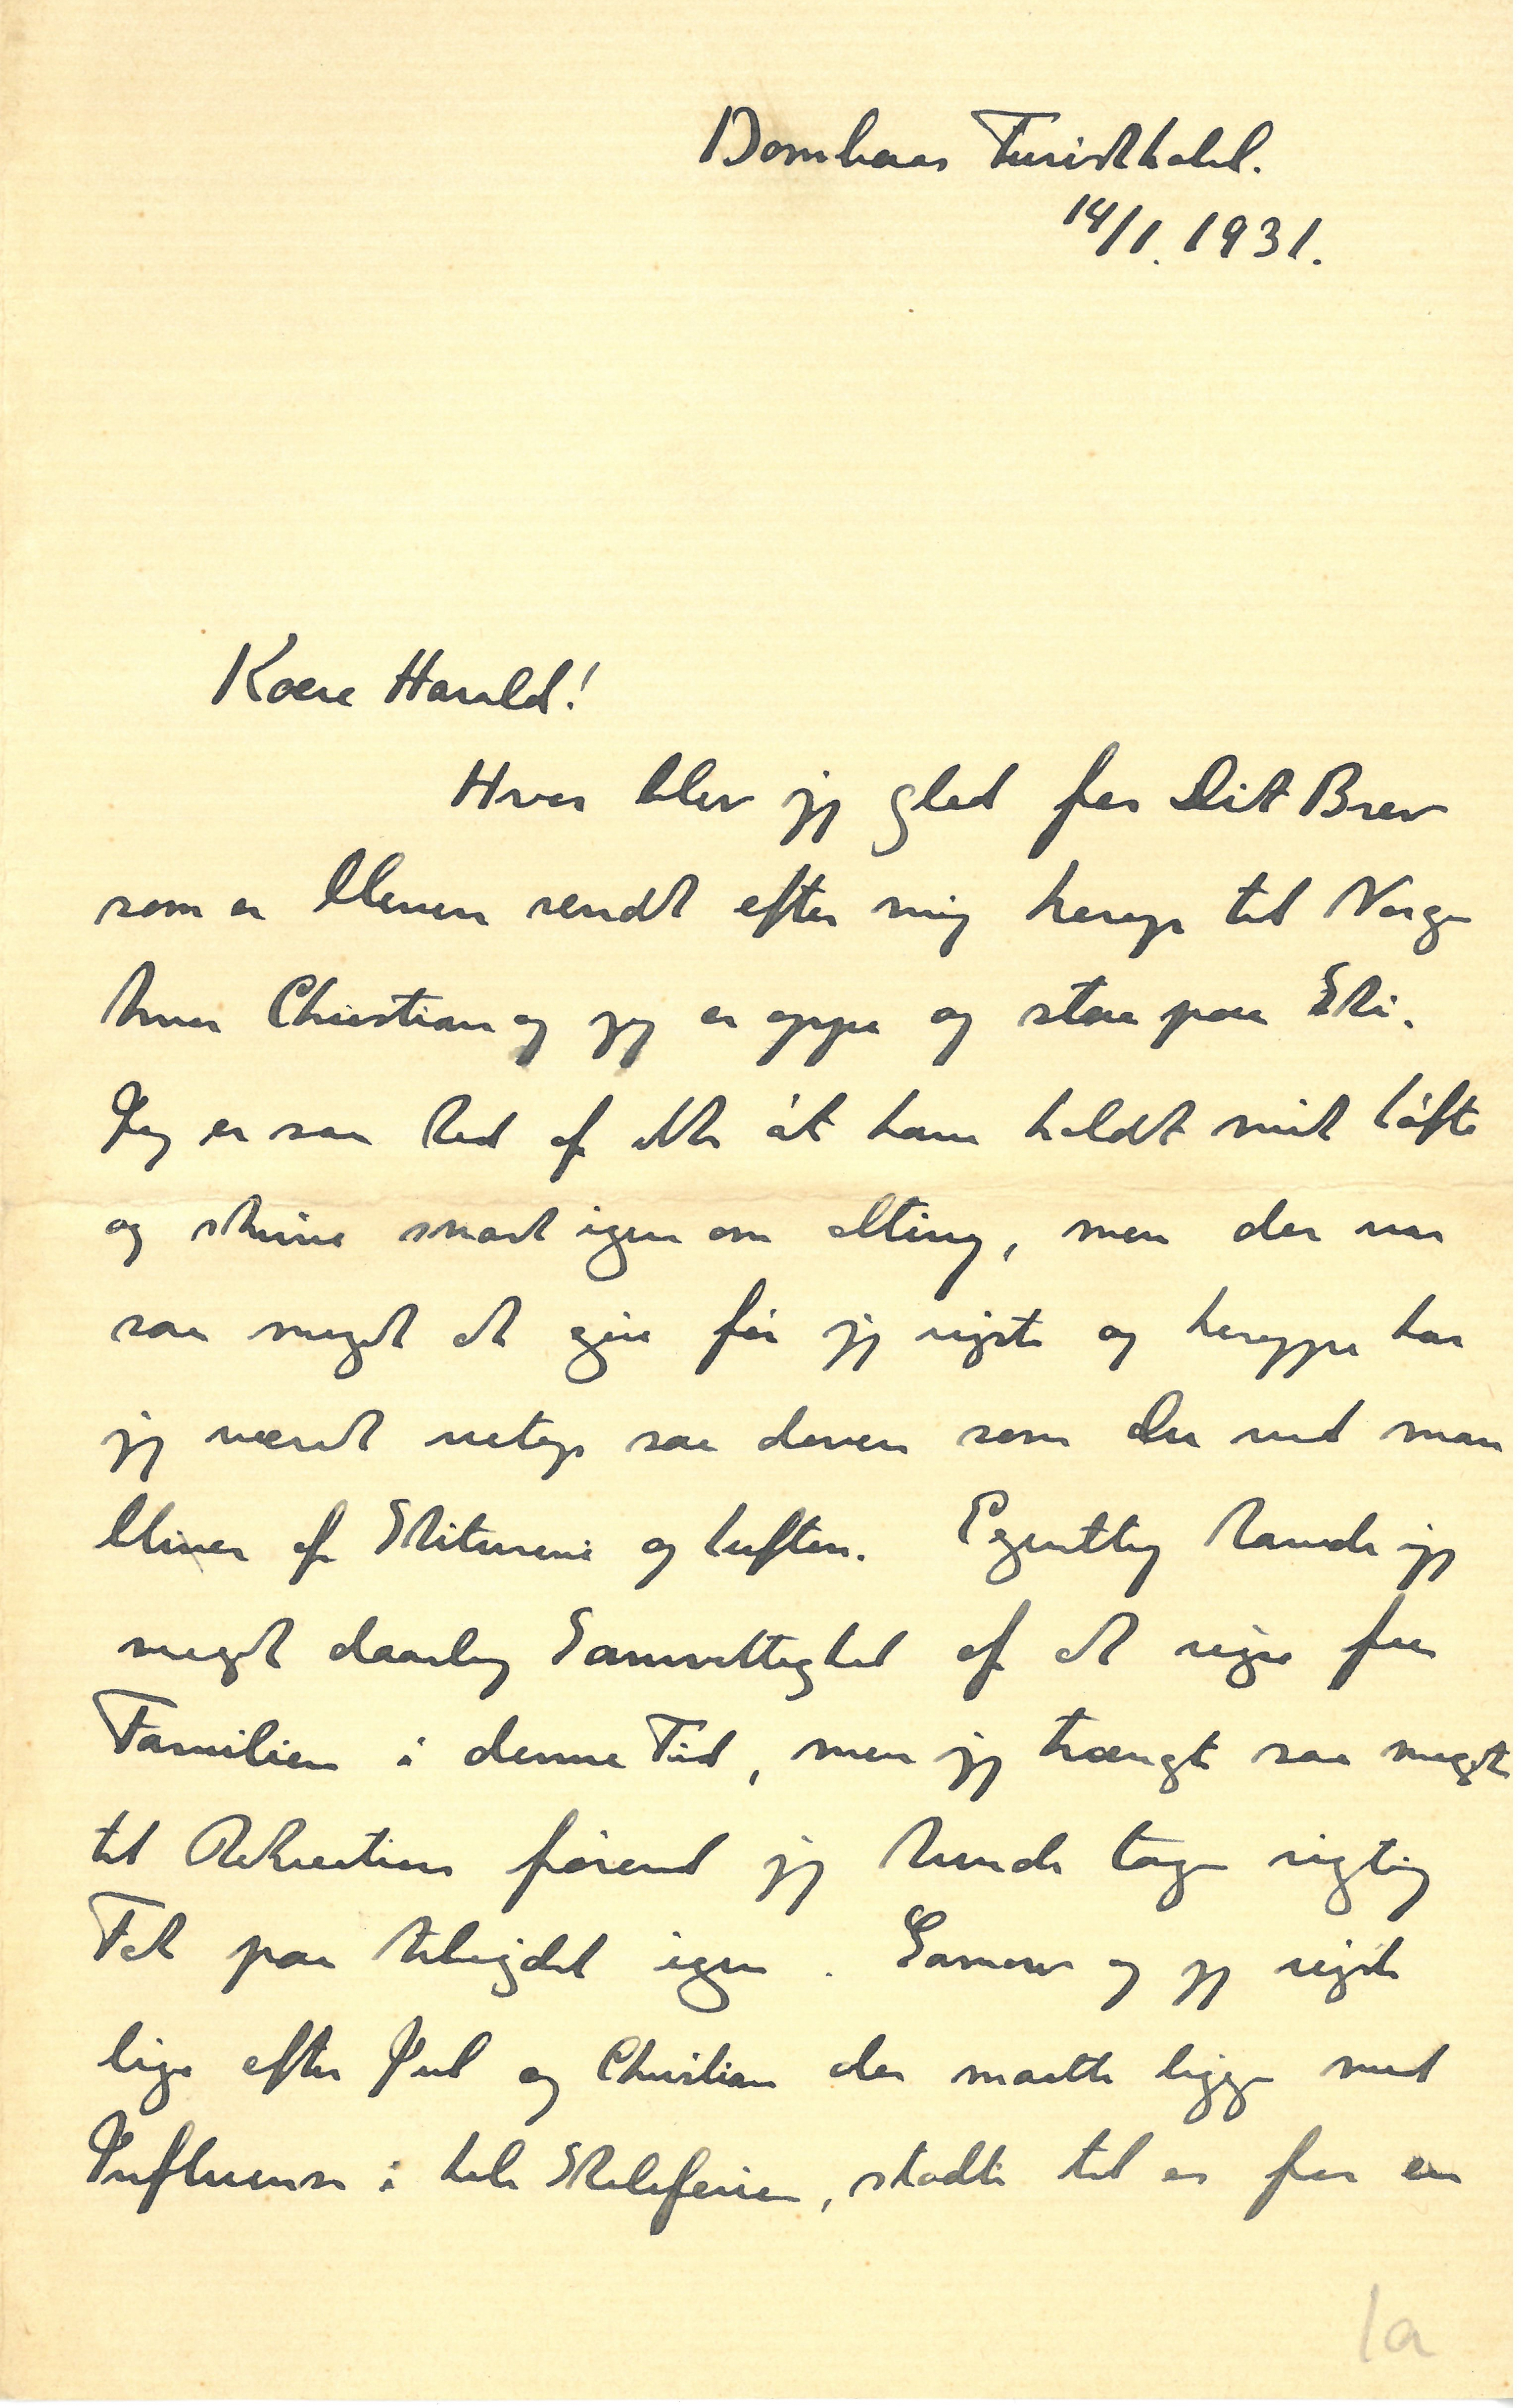 Dombaas Turisthotel.
14/1. 1931.
Kære Harald!
Hvor blev jeg glad for Dit Brev
som er bleven sendt efter mig herop til Norge
hvor Christian og jeg er oppe og staa paa Ski.
Jeg er saa ked af ikke at have holdt mit Løfte
og skrive snart igen om alting, men der var
saa meget at gøre før jeg rejste og heroppe har
jeg været netop saa doven som Du ved man
bliver af Skiturene og Luften. Egentlig havde jeg
meget daarlig Samvittighed af at rejse fra
Familien i denne Tid, men jeg trængte saa meget
til Rekreation førend jeg kunde tage rigtig
Fat paa Arbejdet igen. og jeg rejste
lige efter Jul og Christian der maatte ligge med
Influensa i hele Skoleferien, stødte til os for en
1a